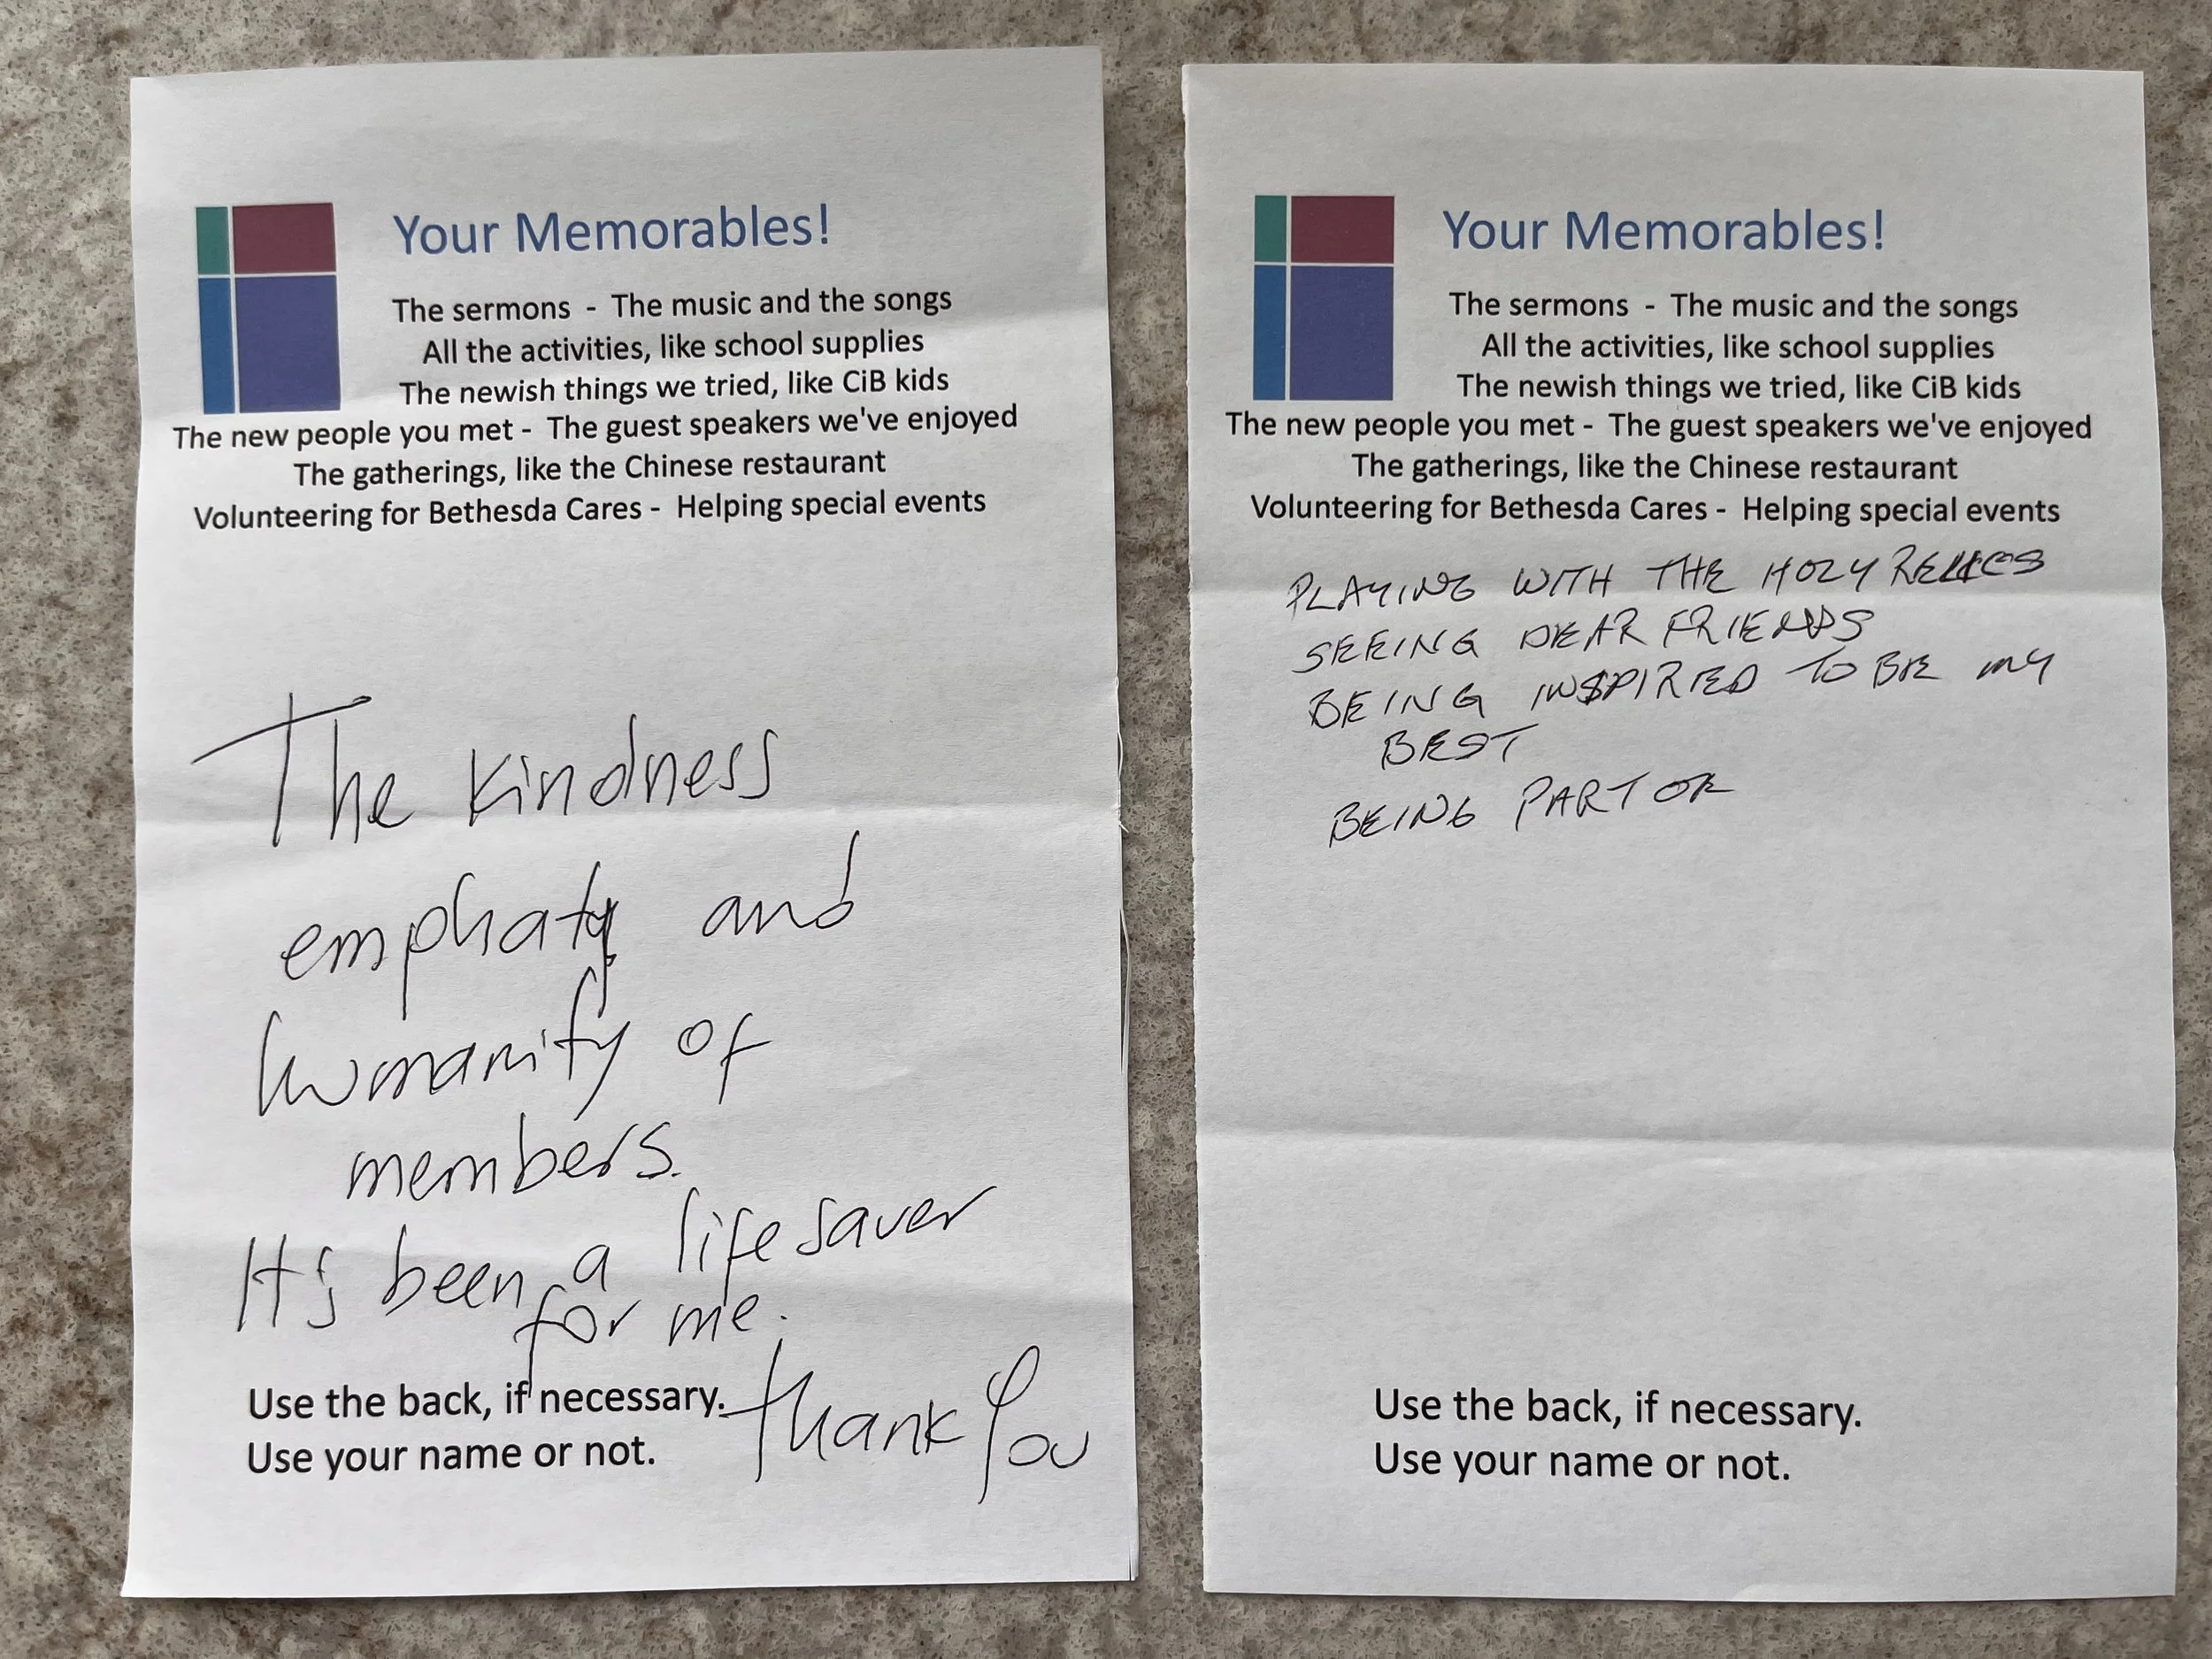 Your Memorables!
The sermons - The music and the songs
All the activities, like school supplies
The newish things we tried, like CiB kids
The new people you met - The guest speakers we've enjoyed
The gatherings, like the Chinese restaurant
Volunteering for Bethesda Cares - Helping special events
The kindness
emphaty and
humanity of
members.
It's been a life saver
for me.
Thank You
Use the back, if necessary.
Use your name or not.
Your Memorables!
The sermons - The music and the songs
All the activities, like school supplies
The newish things we tried, like CiB kids
The new people you met - The guest speakers we've enjoyed
The gatherings, like the Chinese restaurant
Volunteering for Bethesda Cares - Helping special events
PLAYING WITH THE HOLY RELICS
SEEING DEAR FRIENDS
BEING INSPIRED TO BE MY
BEST
BEING PART OF
Use the back, if necessary.
Use your name or not.